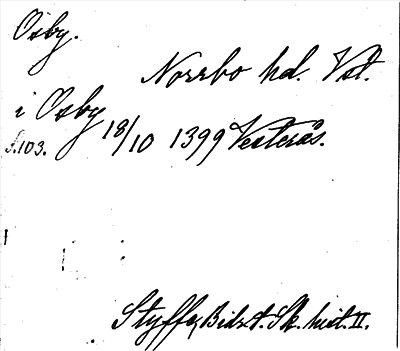 Osby.
Norrbo hd. Vst.
i Osby 18/10 1399 Vesterås.
s.103.
Styffe, Bidr. t. Sk. hist. II.